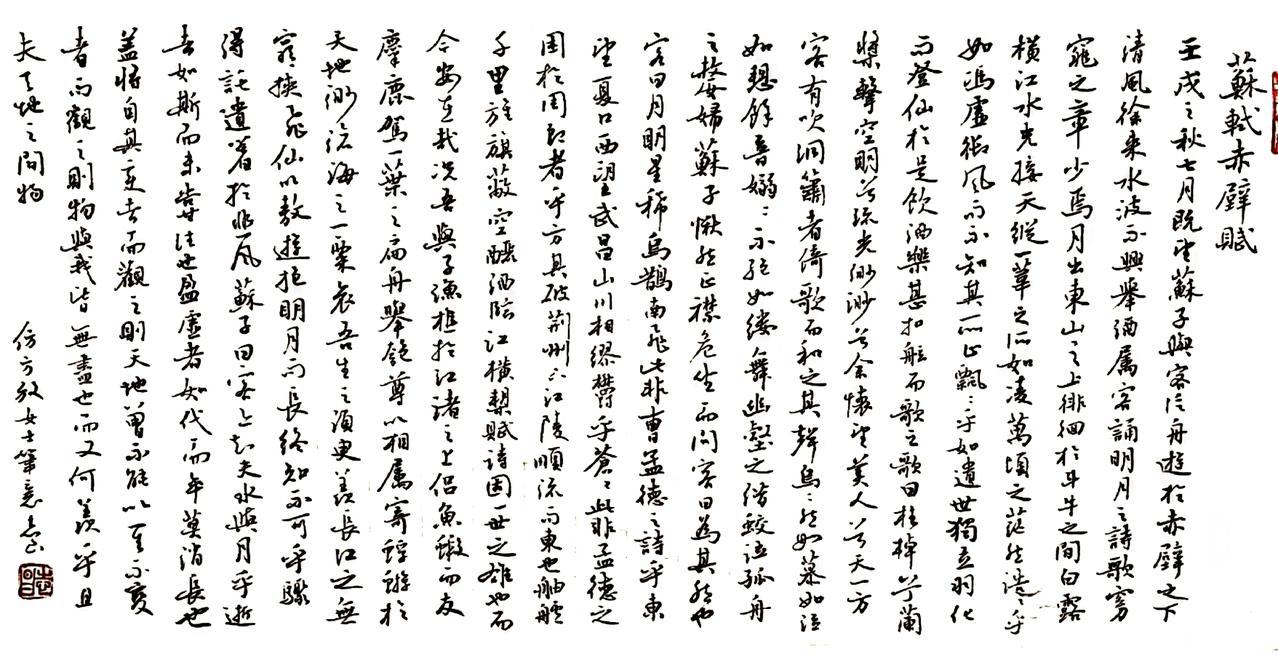 蘇軾赤壁賦
壬戌之秋七月既望蘇子與客泛舟遊於赤壁之下
清風徐來水波不興舉酒属客誦明月之詩歌窈
窕之章少焉月出東山之上徘徊於斗牛之間白露
橫江水光接天縱一葦之所如凌萬頃之茫然浩浩乎
如馮虛御風而不知其所止飄飄乎如遺世獨立羽化
而登仙於是飲酒樂甚扣舷而歌之歌曰桂棹兮蘭
槳擊空明兮流光渺渺兮余懷望美人兮天一方
客有吹洞簫者倚歌而和之其聲烏烏然如慕如泣
如懇餘音嫋嫋不絕如縷舞幽壑之潛蛟泣孤舟
之嫠婦蘇子愀然正襟危坐而問客曰為其然也
客曰月明星稀烏鵲南飛此非曹孟德之詩乎東
望夏口西望武昌山川相繆欝乎蒼蒼此非孟德之
困於周郎者乎方其破荆州下江陵順流而東也舳艫
千里旌旗蔽空釃酒臨江橫槊賦詩固一世之雄也而
今安在哉况吾與子漁樵於江渚之上侶魚蝦而友
麋鹿駕一葉之扁舟舉匏尊以相属寄蜉蝣於
天地渺滄海之一粟哀吾生之須臾羨長江之無
窮挾飛仙以敖遊抱明月而長終知不可乎驟
得託遺響於悲風蘇子曰客亦知夫水與月乎逝
者如斯而未嘗往也盈虛者如代而卒莫消長也
盖將自其变者而觀之則天地曾不能以
者而觀之則物與我皆無盡也而又何羨乎且
夫天地之間物
仿方放女士筆意